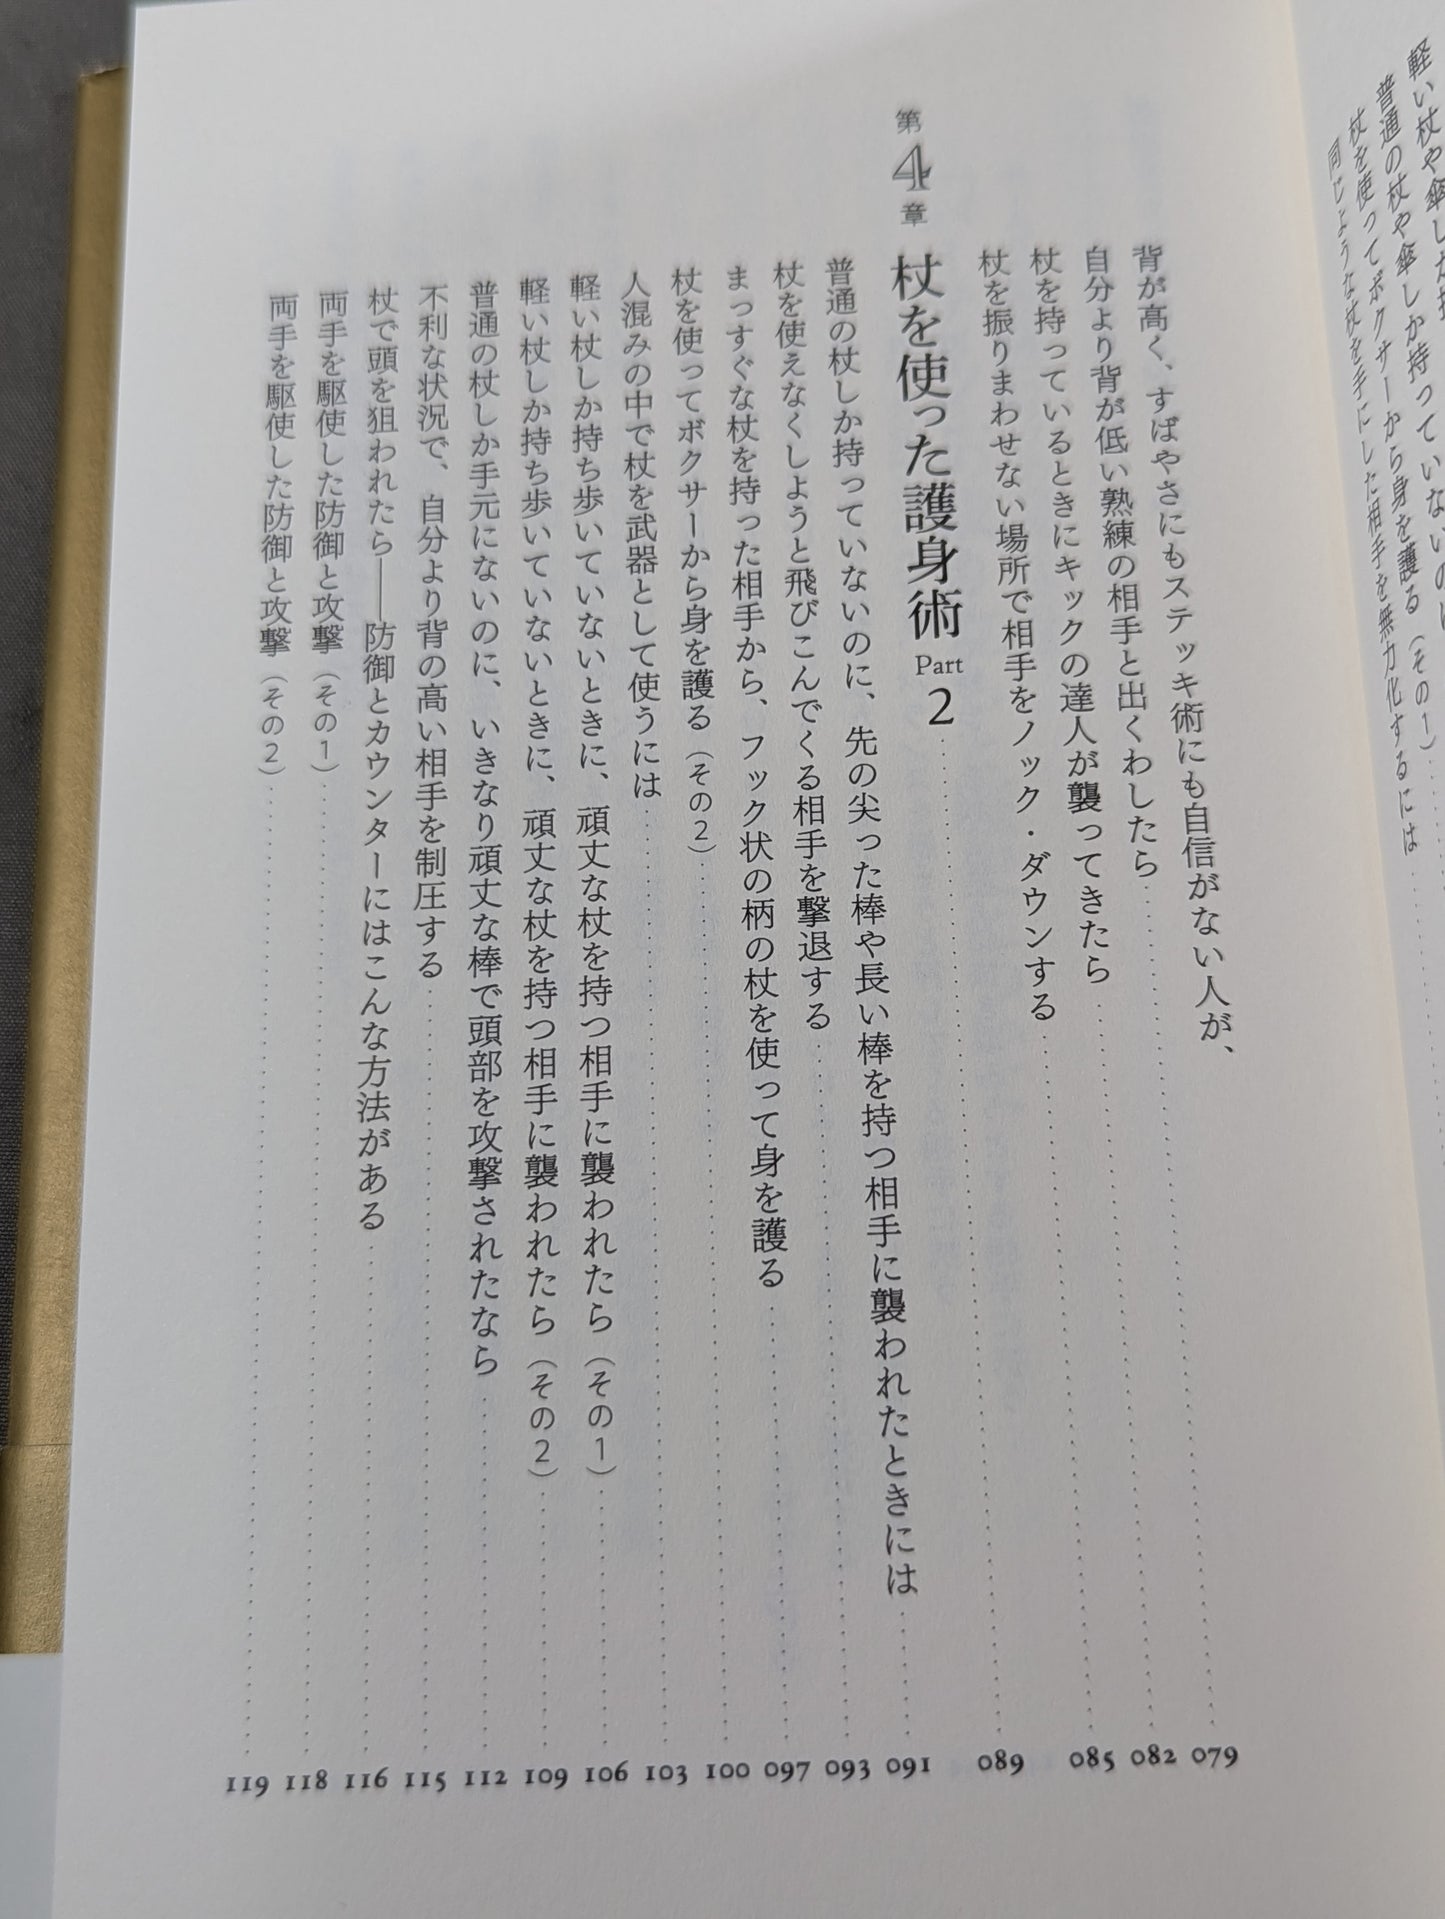 軽い杖や傘しか
普通の杖や傘しか持っていないのに
杖を使ってボクサーから身を護る（その1）
同じような杖を手にした相手を無力化するには
背が高く、すばやさにもステッキ術にも自信がない人が、
自分より背が低い熟練の相手と出くわしたら 079
杖を持っているときにキックの達人が襲ってきたら 082
杖を振りまわせない場所で相手をノック・ダウンする 085
第4章 杖を使った護身術 Part 2 089
普通の杖しか持っていないのに、先の尖った棒や長い棒を持つ相手に襲われたときには 091
杖を使えなくしようと飛びこんでくる相手を撃退する 093
まっすぐな杖を持った相手から、フック状の柄の杖を使って身を護る 097
杖を使ってボクサーから身を護る（その2） 100
人混みの中で杖を武器として使うには 103
軽い杖しか持ち歩いていないときに、頑丈な杖を持つ相手に襲われたら（その1） 106
軽い杖しか持ち歩いていないときに、頑丈な杖を持つ相手に襲われたら（その2） 109
普通の杖しか手元にないのに、いきなり頑丈な棒で頭部を攻撃されたなら 112
不利な状況で、自分より背の高い相手を制圧する 115
杖で頭を狙われたら――防御とカウンターにはこんな方法がある 116
両手を駆使した防御と攻撃（その1） 118
両手を駆使した防御と攻撃（その2） 119